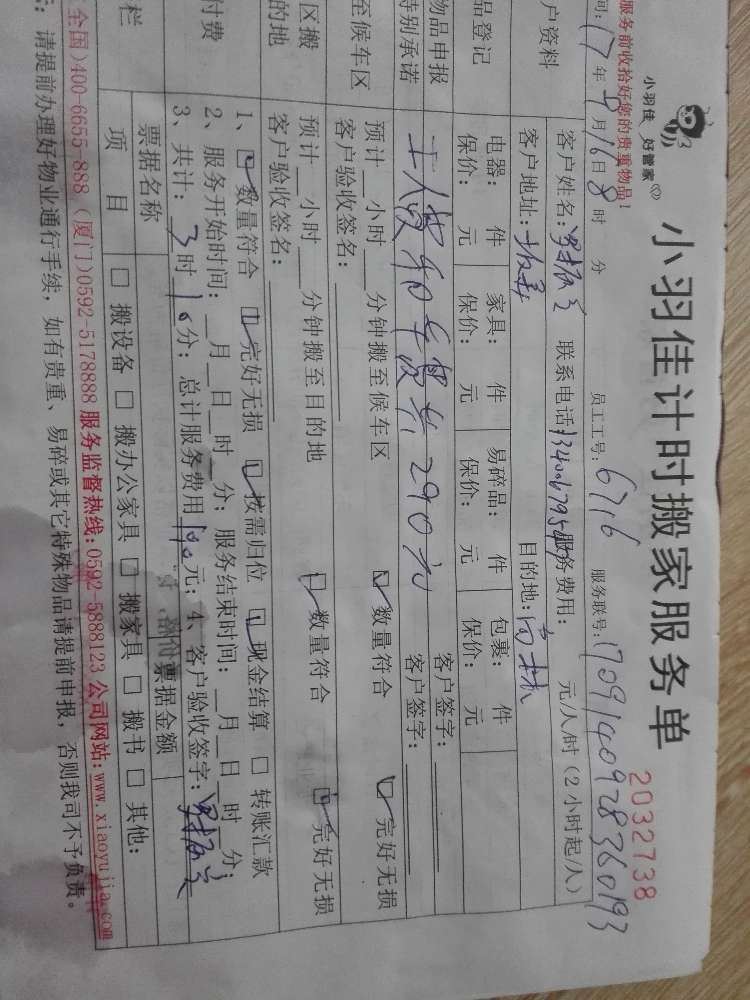 小羽佳计时搬家服务单
2032738
小羽佳 好管家
服务前收拾好您的贵重物品!
间: 17年9月16日8时 分 员工工号: 6716 服务联号: 170914092836 0193
户资料 客户姓名: 联系电话: 服务费用: 元/人/时(2小时起/人)
客户地址: 目的地: 高林
品登记 电器: 件 家具: 件 易碎品: 件 包裹: 件
保价: 元 保价: 元 保价: 元 保价: 元
物品申报 客户签字:
特别承诺 人费和车费共290元 客户签字:
至候车区 预计__小时__分钟搬至候车区 ☑数量符合 ☑完好无损
客户验收签名:
区搬 预计__小时__分钟搬至目的地 ☑数量符合 ☑完好无损
的地 客户验收签名:
1、☑数量符合 ☑完好无损 ☑按需归位 ☑现金结算 □转账汇款
付费 2、服务开始时间:__月__日__时__分; 服务结束时间:__月__日__时__分;
3、共计: 3时10分; 总计服务费用190元; 4、客户验收签字:
栏 票据名称 票据金额
项目 □搬设备 □搬办公家具 □搬家具 □搬书 □其他:
全国)400-6655-888 (厦门)0592-5178888 服务监督热线:0592-5888123 公司网站:www.xiaoyujia.com
: 请提前办理好物业通行手续,如有贵重、易碎或其它特殊物品请提前申报,否则我司不予负责。